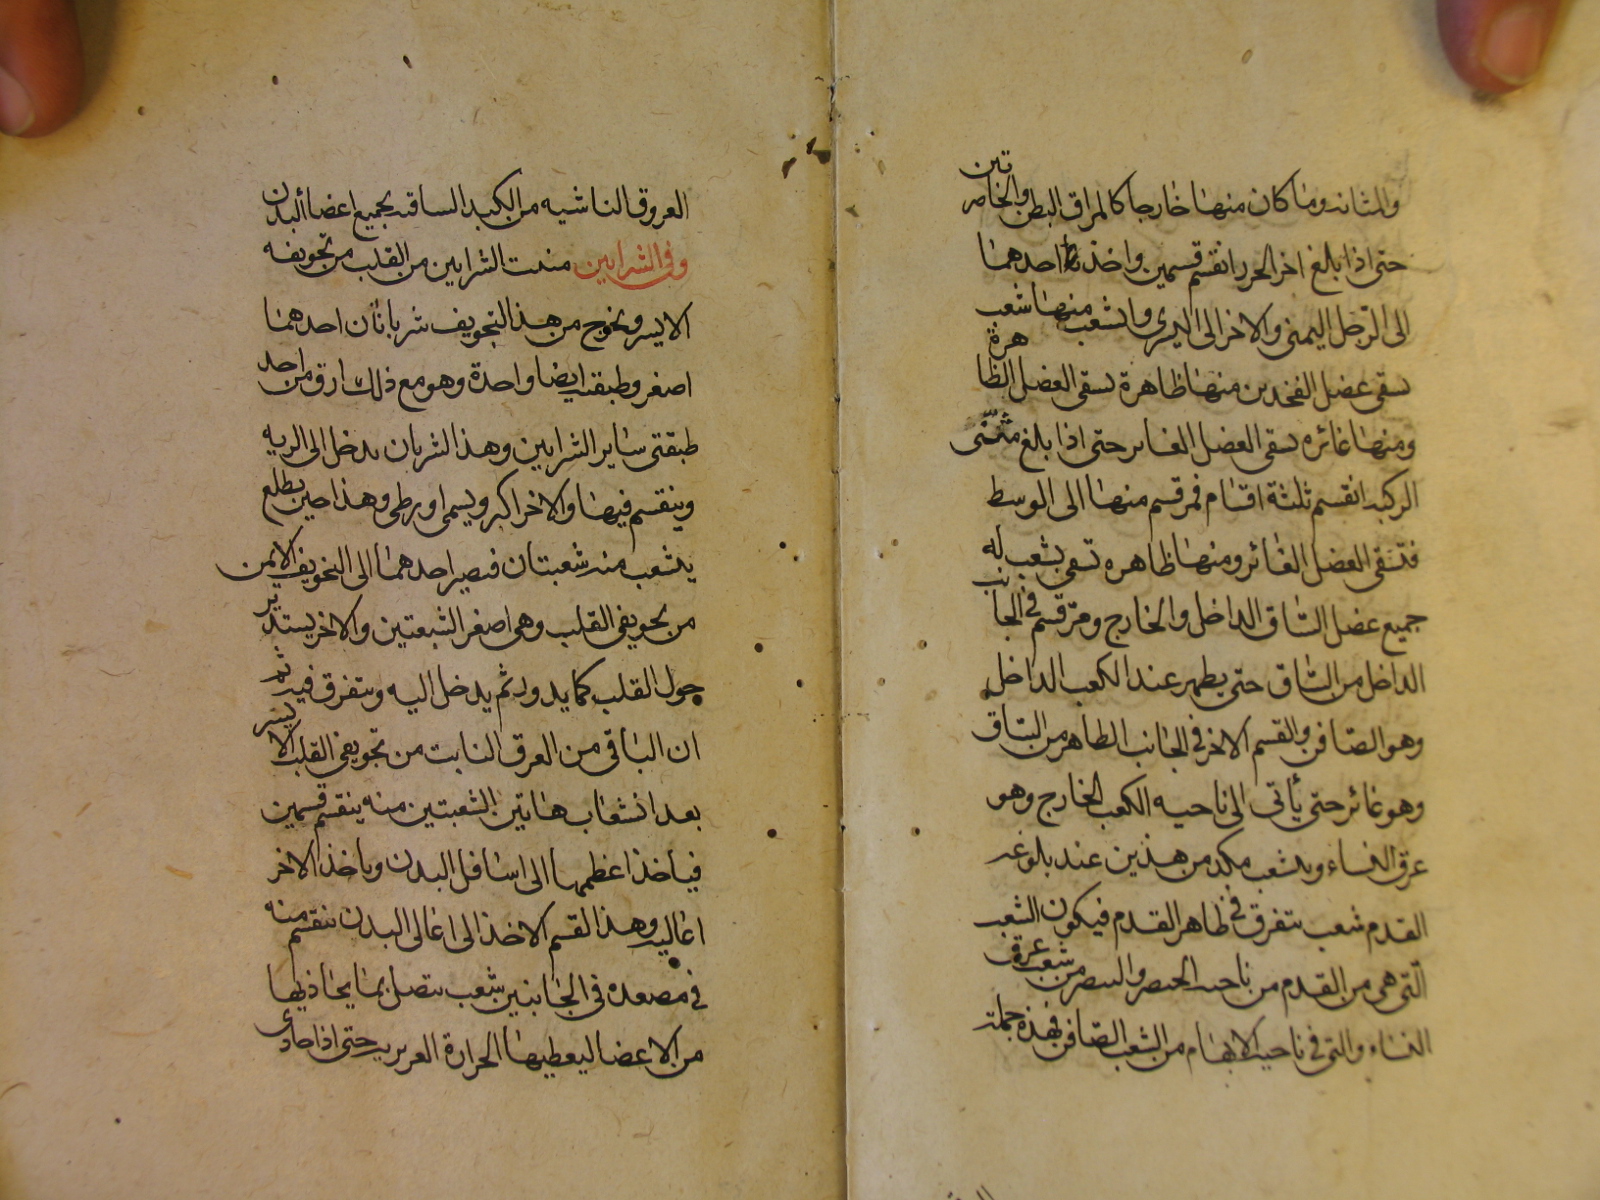 والمثانه وما كان منها خارجا كالمراق البطن والخاصرتين
حتى اذا بلغ اخر الحرر انقسم قسمين واخذ احدهما
الى الرجل اليمنى والاخر الى اليسرى وانشعب منها شعب
تسقى عضل الفخدين منها ظاهرة تسقى العضل الظاهرة
ومنها غائره تسقى العضل الغاير حتى اذا بلغ مثنى
الركبه انقسم ثلثة اقسام فمر قسم منها الى الوسط
فتسقى العضل الغائر ومنها ظاهره تسقى بشعب له
جميع عضل الساق الداخل والخارج ومر قسم فى الجانب
الداخل من الساق حتى يظهر عند الكعب الداخل
وهو الصافن والقسم الاخر فى الجانب الظاهر من الساق
وهو غائر حتى يأتى الى ناحيه الكعب الخارج وهو
عرق النساء وينشعب من هذين عند بلوغه
القدم شعب تتفرق فى ظاهر القدم فيكون الشعب
التى هى من القدم من ناحيه الخنصر والبنصر من شعب عرق
النساء والتى فى ناحيه الابهام من الشعب الصافن فهذه جملة
العروق الناشيه من الكبد الساقيه بجميع اعضا البدن
وفى الشرايين منبت الشرايين من القلب من تجويفه
الايسر ويخرج من هذ التجويف شريانان احدهما
اصغر وطبقته ايضا واحدة وهو مع ذلك ارق من احد
طبقتى ساير الشرايين وهذا الشريان يدخل الى الريه
وينقسم فيها والاخر اكبر ويسمى اورطى وهذا حين يطلع
يتشعب منه شعبتان فيصير احدهما الى التجويف الايمن
من تجويفى القلب وهى اصغر الشعبتين والاخر يستدير
حول القلب كما يدور ثم يدخل اليه ويتفرق فيه ثم
ان الباقى من العرق النابت من تجويفى القلب الايسر
بعد انشعاب هاتين الشعبتين منه ينقسم قسمين
فياخذ اعظمها الى اسافل البدن وياخذ الاخر
اعاليه وهذا القسم الاخذ الى اعالى البدن تنقسم منه
فى مصعده فى الجانبين شعب تتصل بما يحاذيها
من الاعضا ليعطيها الحرارة الغريزيه حتى اذا حاذى